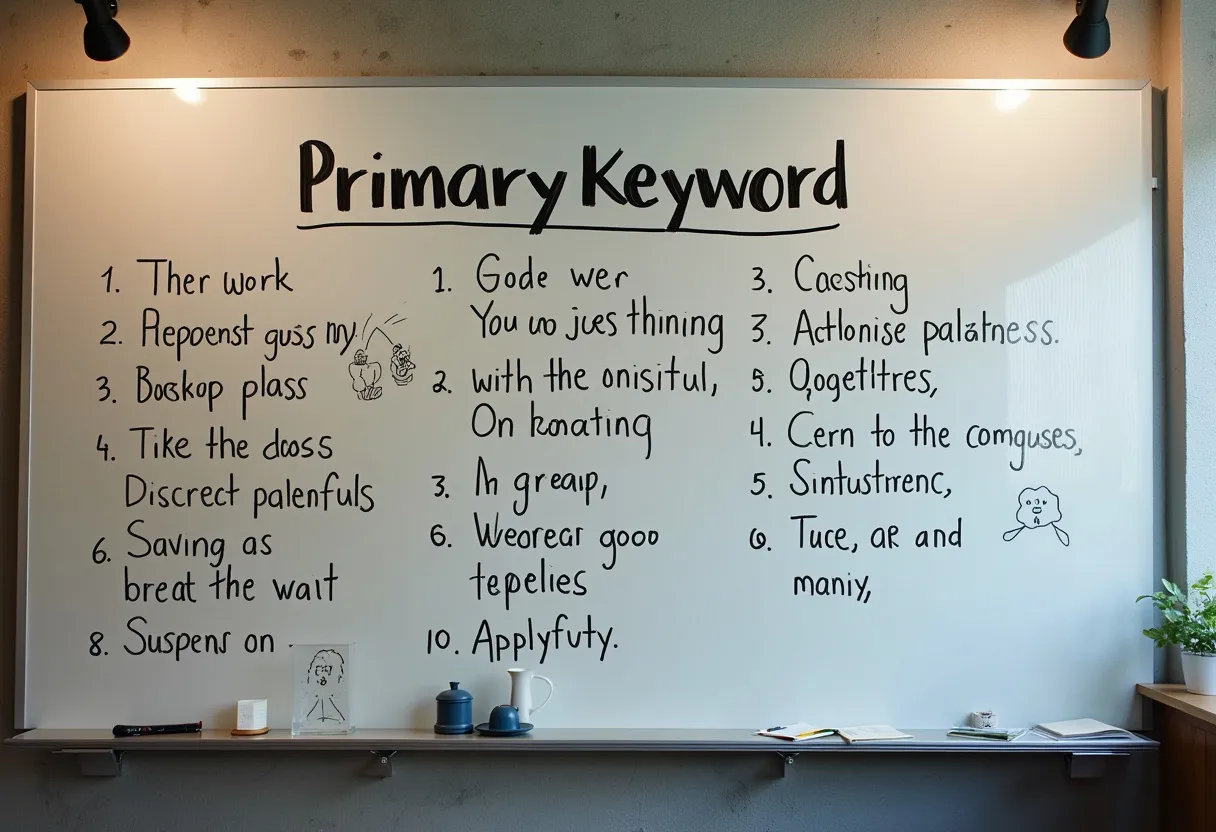 Primary Keyword
1. Ther work
2. Aepoenst guss my
3. Boskop plass
4. Tike the doss
Discrect palenfuls
6. Saving as
breat the wait
8. Suspens on
1. Gode wer
You wo jues thining
2. with the onisitul,
On konating
3. In greaip,
6. Weorear good
tepelies
10. Applyfuty.
3. Caesthing
3. Actlonise palatness.
5. Qogetltres,
4. Cern to the comguses,
5. Sintustrrenc,
6. Tuce, ar and
maniy,